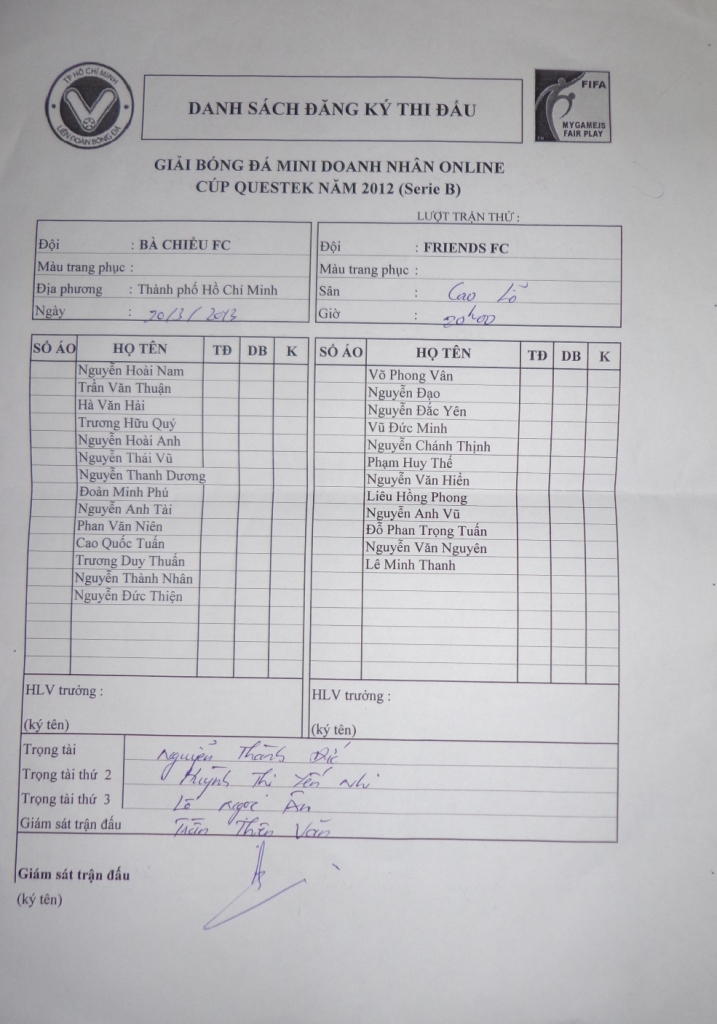 TP HỒ CHÍ MINH
LIÊN ĐOÀN BÓNG ĐÁ
DANH SÁCH ĐĂNG KÝ THI ĐẤU
FIFA
MYGAMEIS
FAIR PLAY
GIẢI BÓNG ĐÁ MINI DOANH NHÂN ONLINE
CÚP QUESTEK NĂM 2012 (Serie B)
LƯỢT TRẬN THỨ :
Đội : BÀ CHIỂU FC
Màu trang phục :
Địa phương : Thành phố Hồ Chí Minh
Ngày : 20/3/2013
Đội : FRIENDS FC
Màu trang phục :
Sân : Cao Lỗ
Giờ : 20h00
SỐ ÁO HỌ TÊN TĐ DB K
Nguyễn Hoài Nam
Trần Văn Thuận
Hà Văn Hải
Trương Hữu Quý
Nguyễn Hoài Anh
Nguyễn Thái Vũ
Nguyễn Thanh Dương
Đoàn Minh Phú
Nguyễn Anh Tài
Phan Văn Niên
Cao Quốc Tuấn
Trương Duy Thuấn
Nguyễn Thành Nhân
Nguyễn Đức Thiện
HLV trưởng :
(ký tên)
SỐ ÁO HỌ TÊN TĐ DB K
Võ Phong Vân
Nguyễn Đạo
Nguyễn Đắc Yên
Vũ Đức Minh
Nguyễn Chánh Thịnh
Phạm Huy Thế
Nguyễn Văn Hiển
Liêu Hồng Phong
Nguyễn Anh Vũ
Đỗ Phan Trọng Tuấn
Nguyễn Văn Nguyên
Lê Minh Thanh
HLV trưởng :
(ký tên)
Trọng tài Nguyễn Thành Đức
Trọng tài thứ 2 Huỳnh Thị Yến Nhi
Trọng tài thứ 3 Lê Ngọc Ân
Giám sát trận đấu Trần Thiên Văn
Giám sát trận đấu
(ký tên)